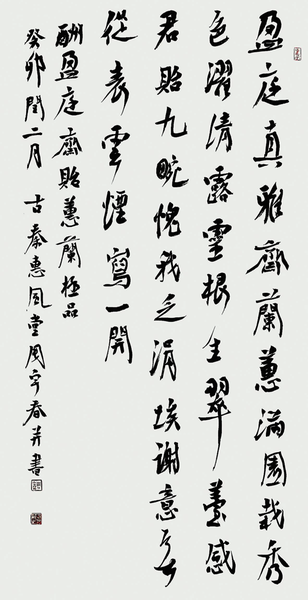 盈庭真雅齋蘭蕙滿園栽秀
色濯清露靈根生翠薹感
君貽九畹愧我乏涓埃謝意无
從表雲煙寫一開
酬盈庭齋貽蕙蘭極品
癸卯閏二月 古秦惠風堂周宇春并書